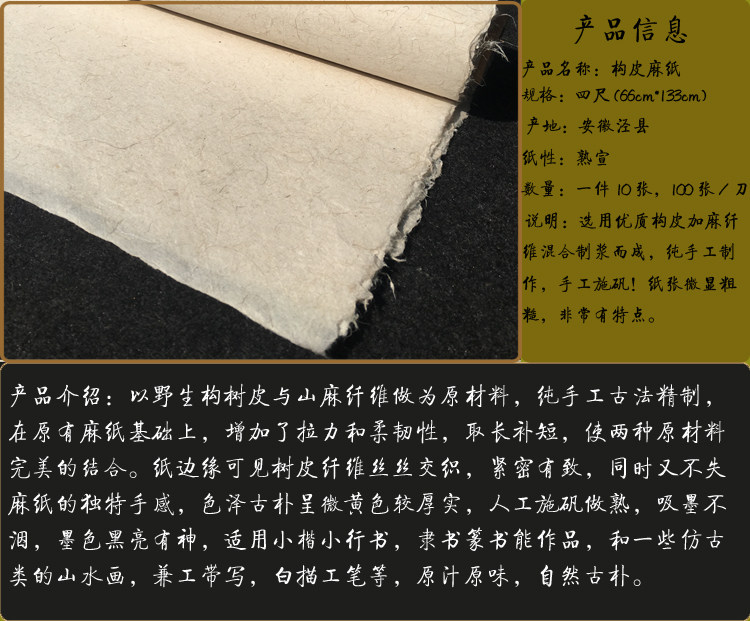 产品信息
产品名称：构皮麻纸
规格：四尺(66cm*133cm)
产地：安徽泾县
纸性：熟宣
数量：一件10张，100张/刀
说明：选用优质构皮加麻纤
维混合制浆而成，纯手工制
作，手工施矾！纸张微显粗
糙，非常有特点。
产品介绍：以野生构树皮与山麻纤维做为原材料，纯手工古法精制，
在原有麻纸基础上，增加了拉力和柔韧性，取长补短，使两种原材料
完美的结合。纸边缘可见树皮纤维丝丝交织，紧密有致，同时又不失
麻纸的独特手感，色泽古朴呈微黄色较厚实，人工施矾做熟，吸墨不
洇，墨色黑亮有神，适用小楷小行书，隶书篆书能作品，和一些仿古
类的山水画，兼工带写，白描工笔等，原汁原味，自然古朴。